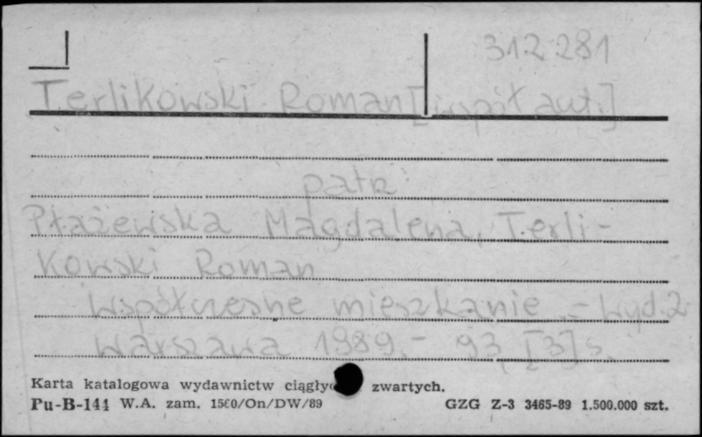 312281
Terlikowski Roman [współaut.]
patrz:
Płażewska Magdalena, Terli-
kowski Roman
Współczesne mieszkanie .- Wyd. 2
Warszawa 1989.- 93 [3] s.
Karta katalogowa wydawnictw zwartych.
Pu-B-141 W.A. zam. 1560/On/DW/89 GZG Z-3 3465-89 1.500.000 szt.